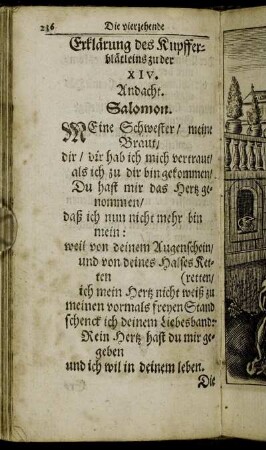 236 Die vierzehende
Erklärung des Kupffer-
blätleins zu der
XIV.
Andacht.
Salomon.
MEine Schwester/ meine
Braut/
dir/ dir hab ich mich vertraut/
als ich zu dir bin gekommen/
Du hast mir das Hertz ge-
nommen/
daß ich nun nicht mehr bin
mein:
weil von deinem Augenschein/
und von deines Halses Ket-
ten (retten/
ich mein Hertz nicht weiß zu
meinen vormals freyen Stand
schenck ich deinem Liebesband:
Kein Hertz hast du mir ge-
geben
und ich wil in deinem leben.
Die